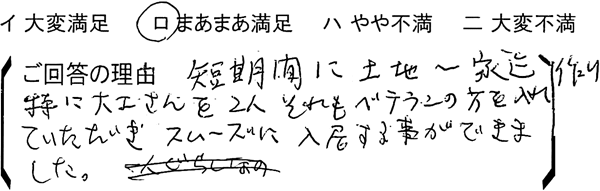 イ 大変満足 ロ まあまあ満足 ハ やや不満 ニ 大変不満
ご回答の理由 短期間に土地〜家迄作り
特に大工さんを2人それもベテランの方を入れ
ていただき スムーズに入居する事ができま
した。